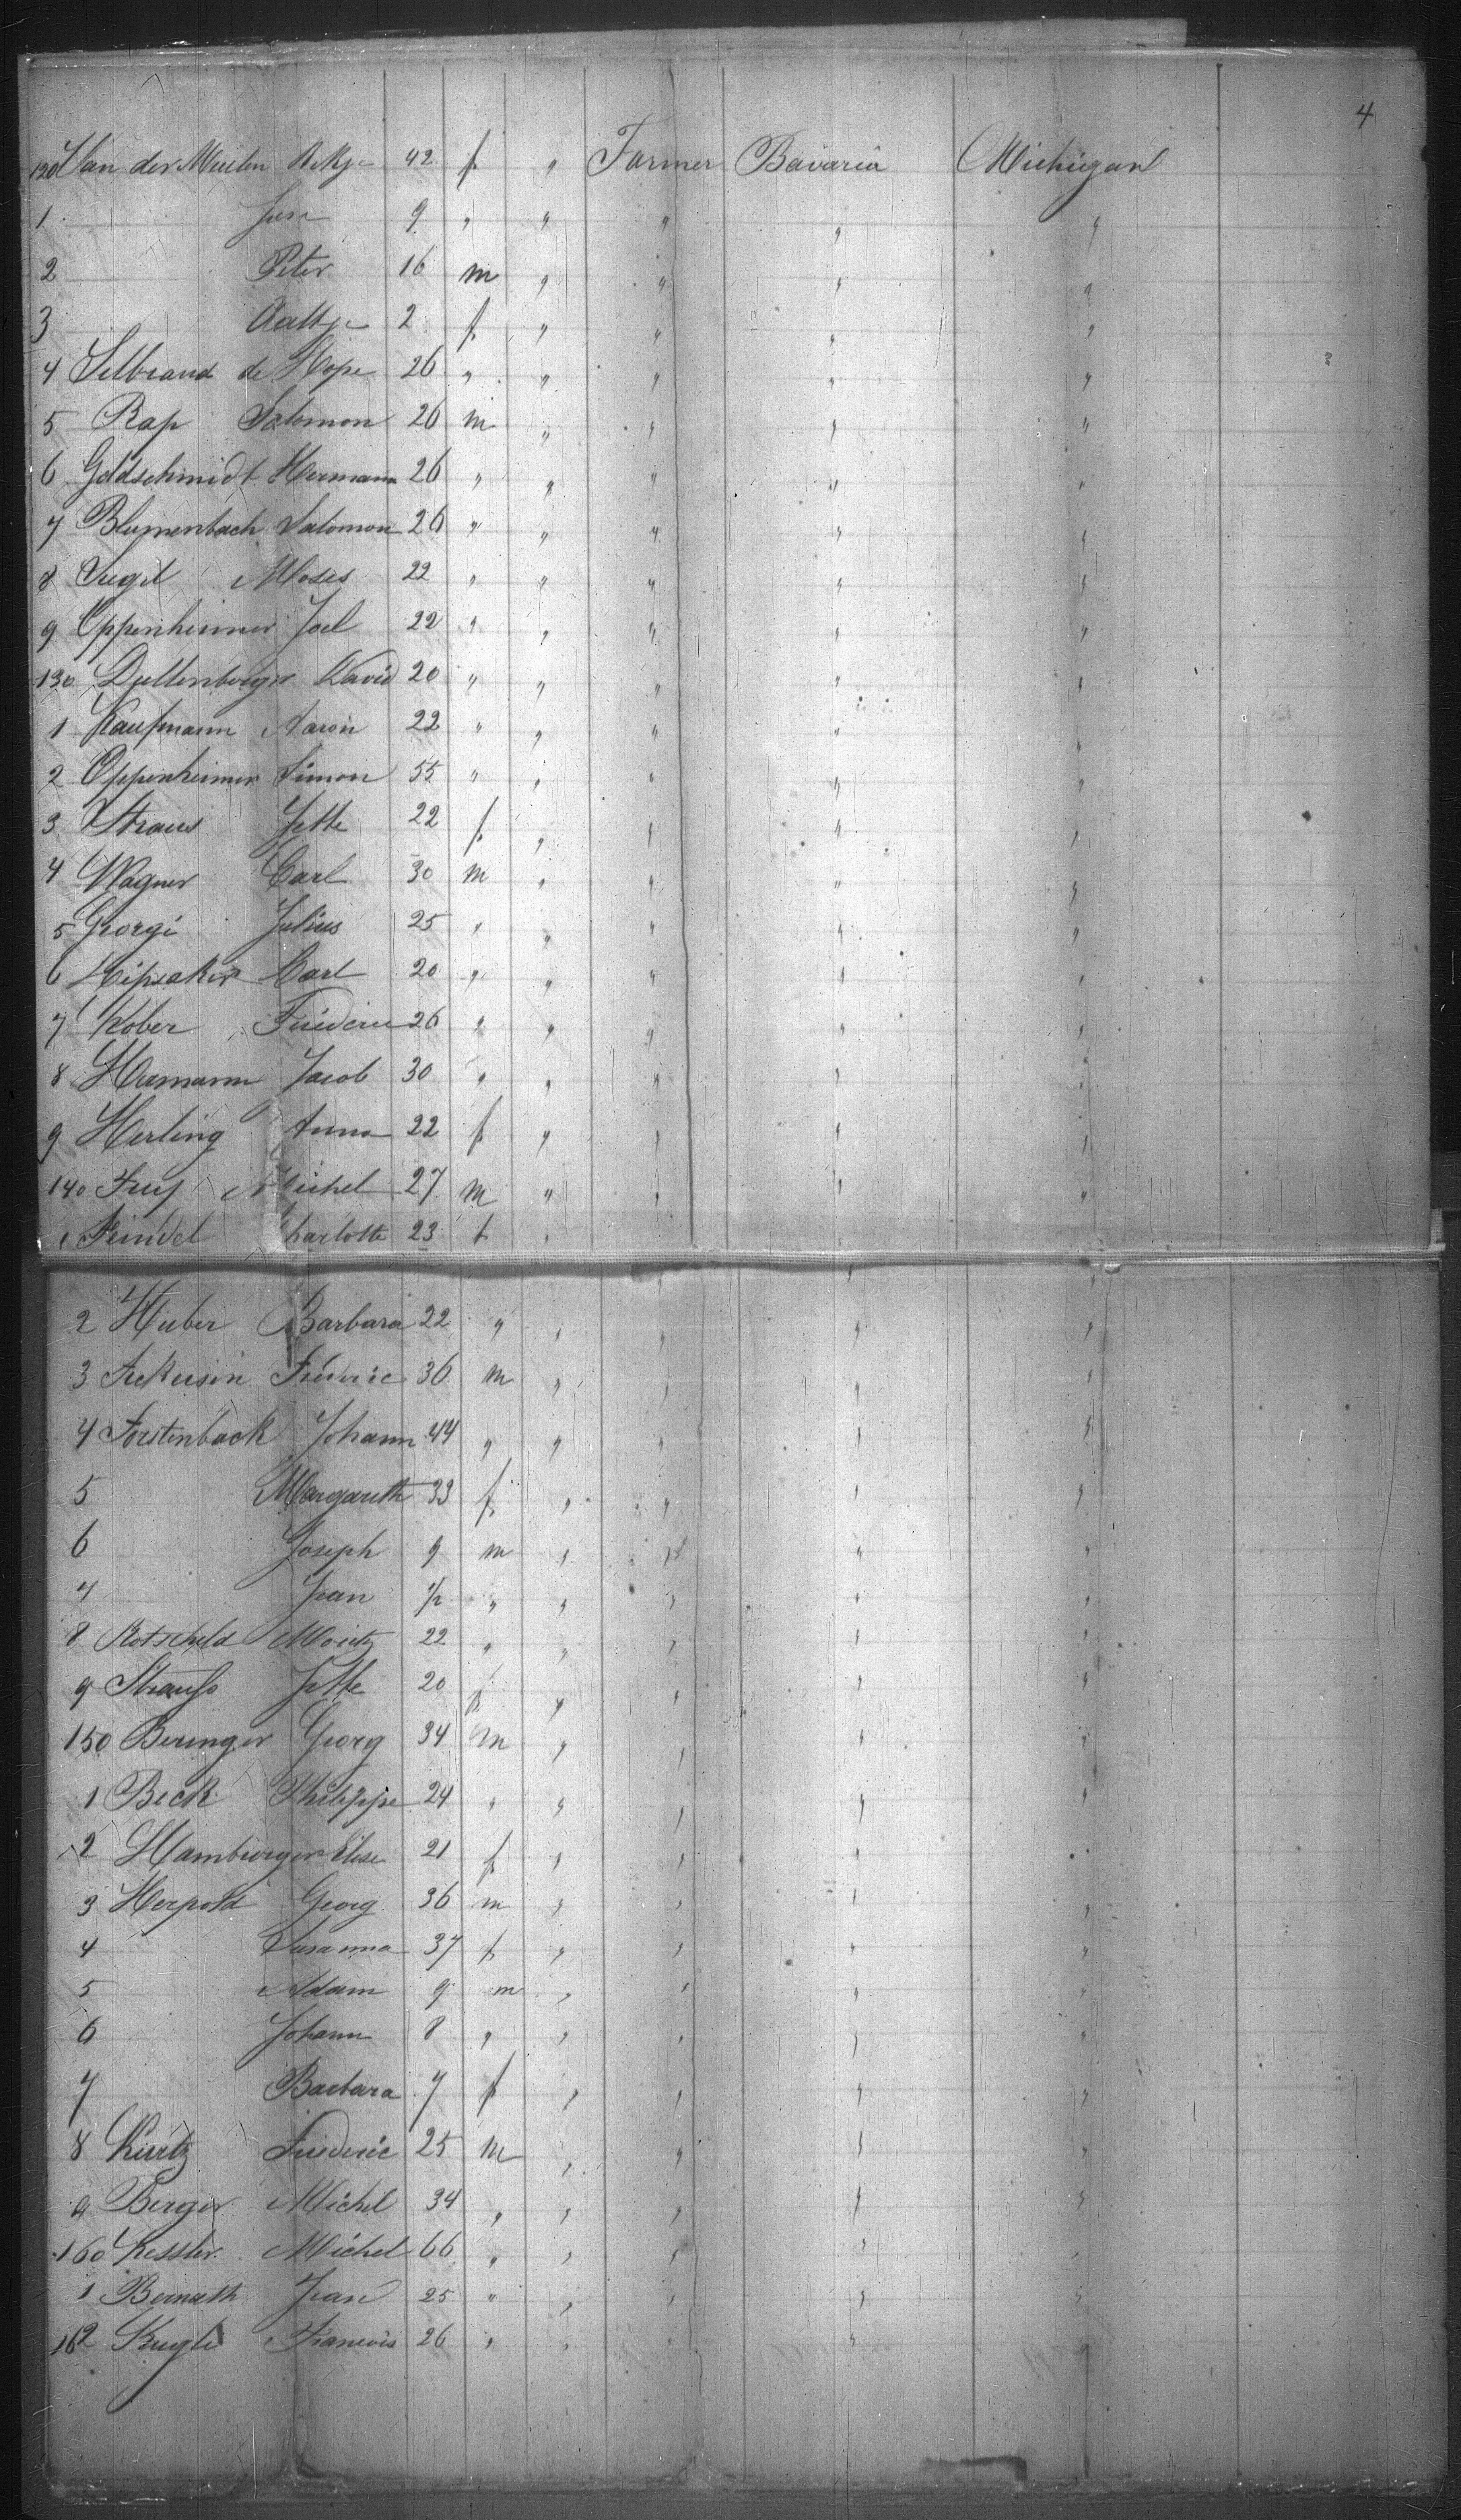 4
120 Van der Meulen Rikje 42 f " Farmer Bavaria Michigan
1 Jan 9 " " " " "
2 Peter 16 m " " " "
3 Aaltje 2 f " " " "
4 de Hope 26 " " " " "
5 Rap Salomon 26 m " " " "
6 Goldschmidt Hermann 26 " " " " "
7 Blumenbach Salomon 26 " " " " "
8 Moses 22 " " " " "
9 Oppenheimer Joel 22 " " " " "
130 David 20 " " " " "
1 Kaufmann Aaron 22 " " " " "
2 Oppenheimer Simon 55 " " " " "
3 Straus Jette 22 f " " " "
4 Wagner Carl 30 m " " " "
5 Georgi Julius 25 " " " " "
6 Carl 20 " " " " "
7 Kober 26 " " " " "
8 Hermann Jacob 30 " " " " "
9 Herling Anna 22 f " " " "
140 Frey Michel 27 m " " " "
1 Charlotte 23 f "
2 Huber Barbara 22 " " " " "
3 Frederic 36 m " " " "
4 Forstenback Johann 44 " " " " "
5 Margareth 33 f " " " "
6 Joseph 9 m " " " "
7 Jean " " " " "
8 Rotscheld Moritz 22 " " " " "
9 Strauss Jette 20 f " " " "
150 Beringer Georg 34 m " " " "
1 Beck Philippe 24 " " " " "
2 Hamburger Elise 21 f " " " "
3 Herpold Georg 36 m " " " "
4 Susanna 37 f " " " "
5 Adam 9 m " " " "
6 Johann 8 " " " " "
7 Barbara 7 f " " " "
8 Kurtz Frederic 25 m " " " "
9 Berger Michel 34 " " " " "
160 Kessler Michel 66 " " " " "
1 Bernath Jean 25 " " " " "
162 Kugle Francois 26 " " " "